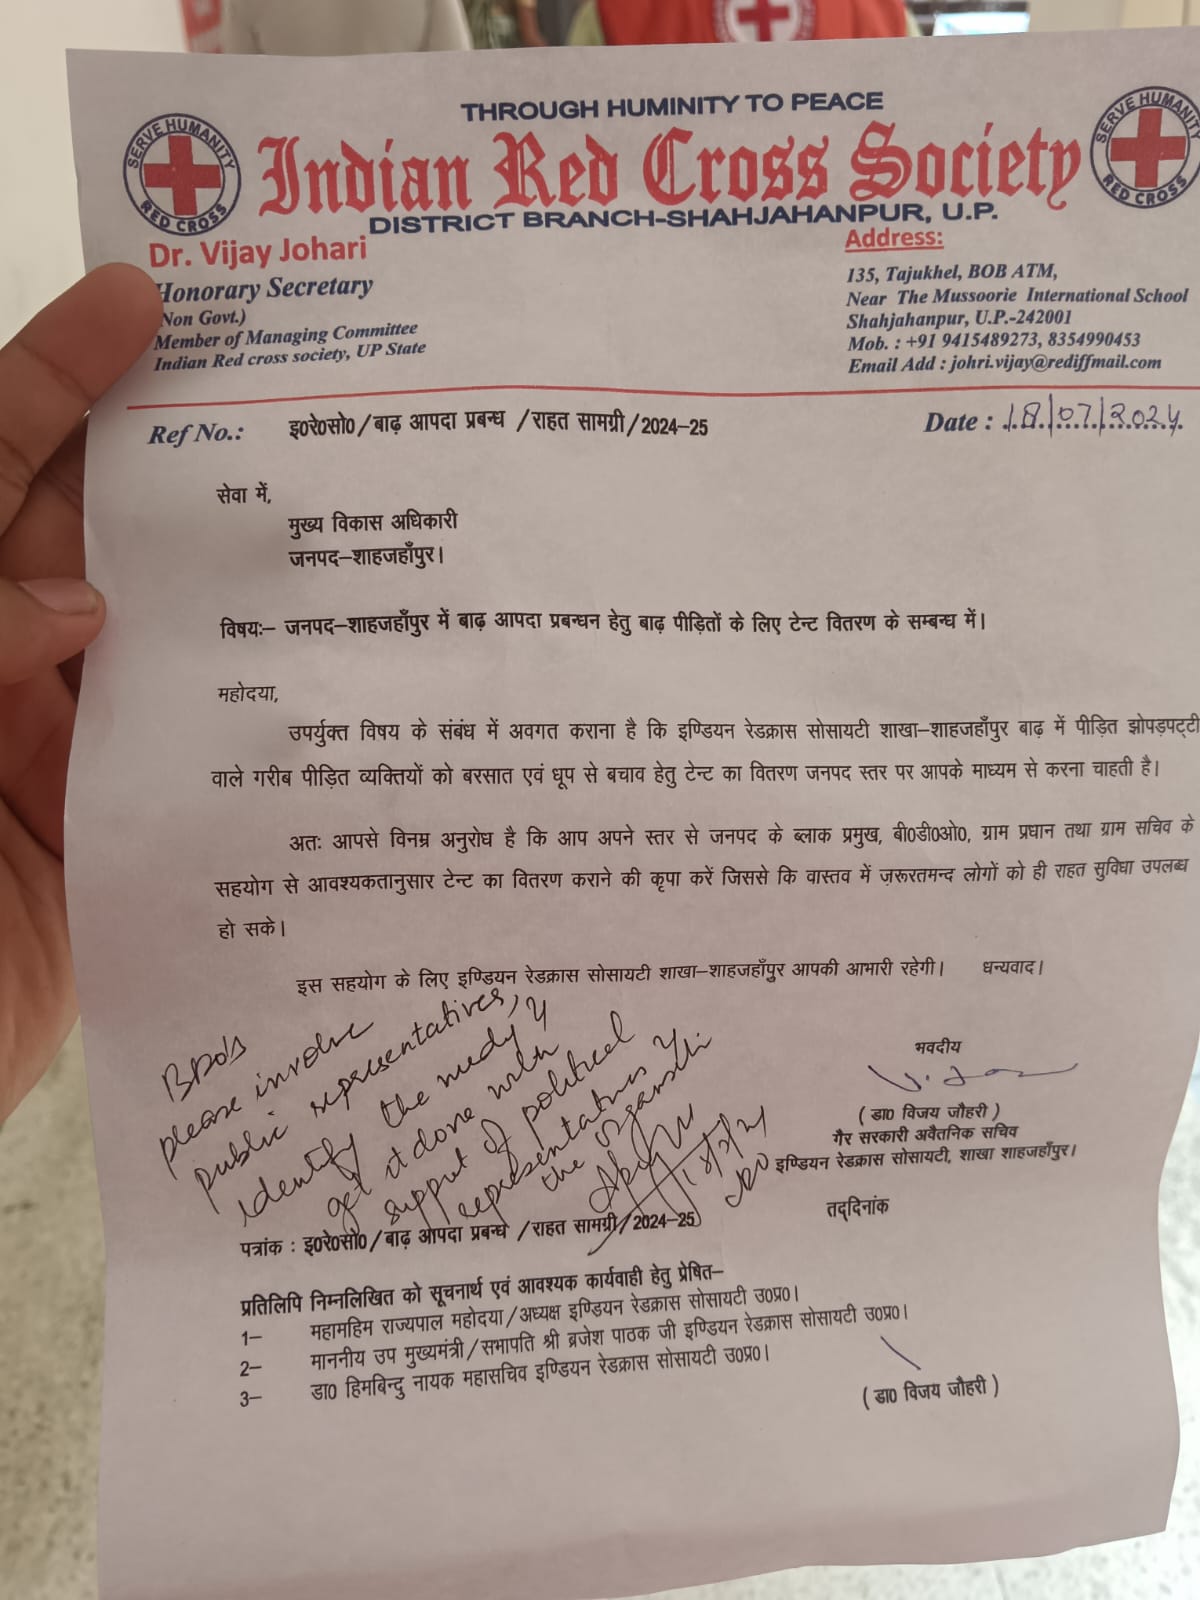 THROUGH HUMINITY TO PEACE
Indian Red Cross Society
DISTRICT BRANCH-SHAHJAHANPUR, U.P.
SERVE HUMANITY
RED CROSS
SERVE HUMANITY
RED CROSS
Dr. Vijay Johari
Honorary Secretary
(Non Govt.)
Member of Managing Committee
Indian Red cross society, UP State
Address:
135, Tajukhel, BOB ATM,
Near The Mussoorie International School
Shahjahanpur, U.P.-242001
Mob. : +91 9415489273, 8354990453
Email Add : johri.vijay@rediffmail.com
Ref No.: इ0रे0सो0/बाढ़ आपदा प्रबन्ध /राहत सामग्री/2024-25
Date : 18/07/2024
सेवा में,
मुख्य विकास अधिकारी
जनपद–शाहजहाँपुर।
विषयः– जनपद–शाहजहाँपुर में बाढ़ आपदा प्रबन्धन हेतु बाढ़ पीड़ितों के लिए टेन्ट वितरण के सम्बन्ध में।
महोदया,
उपर्युक्त विषय के संबंध में अवगत कराना है कि इण्डियन रेडक्रास सोसायटी शाखा–शाहजहाँपुर बाढ़ में पीड़ित झोपड़पट्टी
वाले गरीब पीड़ित व्यक्तियों को बरसात एवं धूप से बचाव हेतु टेन्ट का वितरण जनपद स्तर पर आपके माध्यम से करना चाहती है।
अतः आपसे विनम्र अनुरोध है कि आप अपने स्तर से जनपद के ब्लाक प्रमुख, बी0डी0ओ0, ग्राम प्रधान तथा ग्राम सचिव के
सहयोग से आवश्यकतानुसार टेन्ट का वितरण कराने की कृपा करें जिससे कि वास्तव में ज़रूरतमन्द लोगों को ही राहत सुविधा उपलब्ध
हो सके।
इस सहयोग के लिए इण्डियन रेडक्रास सोसायटी शाखा–शाहजहाँपुर आपकी आभारी रहेगी। धन्यवाद।
BDO's
please involve
public representatives,
identify the needy &
get it done with
support of political
representatives &
the
भवदीय
( डा0 विजय जौहरी )
गैर सरकारी अवैतनिक सचिव
इण्डियन रेडक्रास सोसायटी, शाखा शाहजहाँपुर।
पत्रांक : इ0रे0सो0/बाढ़ आपदा प्रबन्ध /राहत सामग्री/2024-25
तद्दिनांक
प्रतिलिपि निम्नलिखित को सूचनार्थ एवं आवश्यक कार्यवाही हेतु प्रेषित–
1– महामहिम राज्यपाल महोदया/अध्यक्ष इण्डियन रेडक्रास सोसायटी उ0प्र0।
2– माननीय उप मुख्यमंत्री/सभापति श्री ब्रजेश पाठक जी इण्डियन रेडक्रास सोसायटी उ0प्र0।
3– डा0 हिमबिन्दु नायक महासचिव इण्डियन रेडक्रास सोसायटी उ0प्र0।
( डा0 विजय जौहरी )